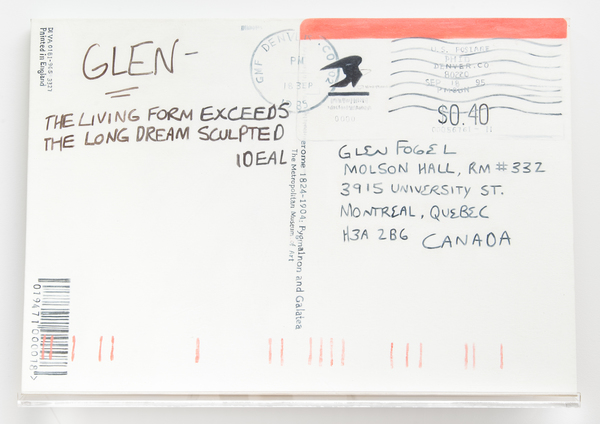 DEVA 0161-965-3377
Printed in England
GLEN-
THE LIVING FORM EXCEEDS
THE LONG DREAM SCULPTED
IDEAL
GMF DENVER, CO
PM
18 SEP
U.S. POSTAGE
PAID
DENVER, CO
SEP 18 95
$0.40
erome 1824-1904: Pygmalion and Galatea
The Metropolitan Museum of Art
GLEN FOGEL
MOLSON HALL, RM #332
3915 UNIVERSITY ST.
MONTREAL, QUEBEC
H3A 2B6 CANADA